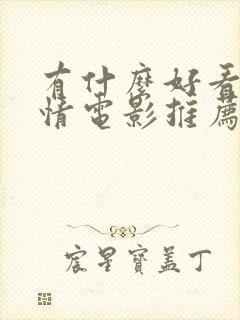 有什麼好看
情電影推薦
宸星寶盖丁